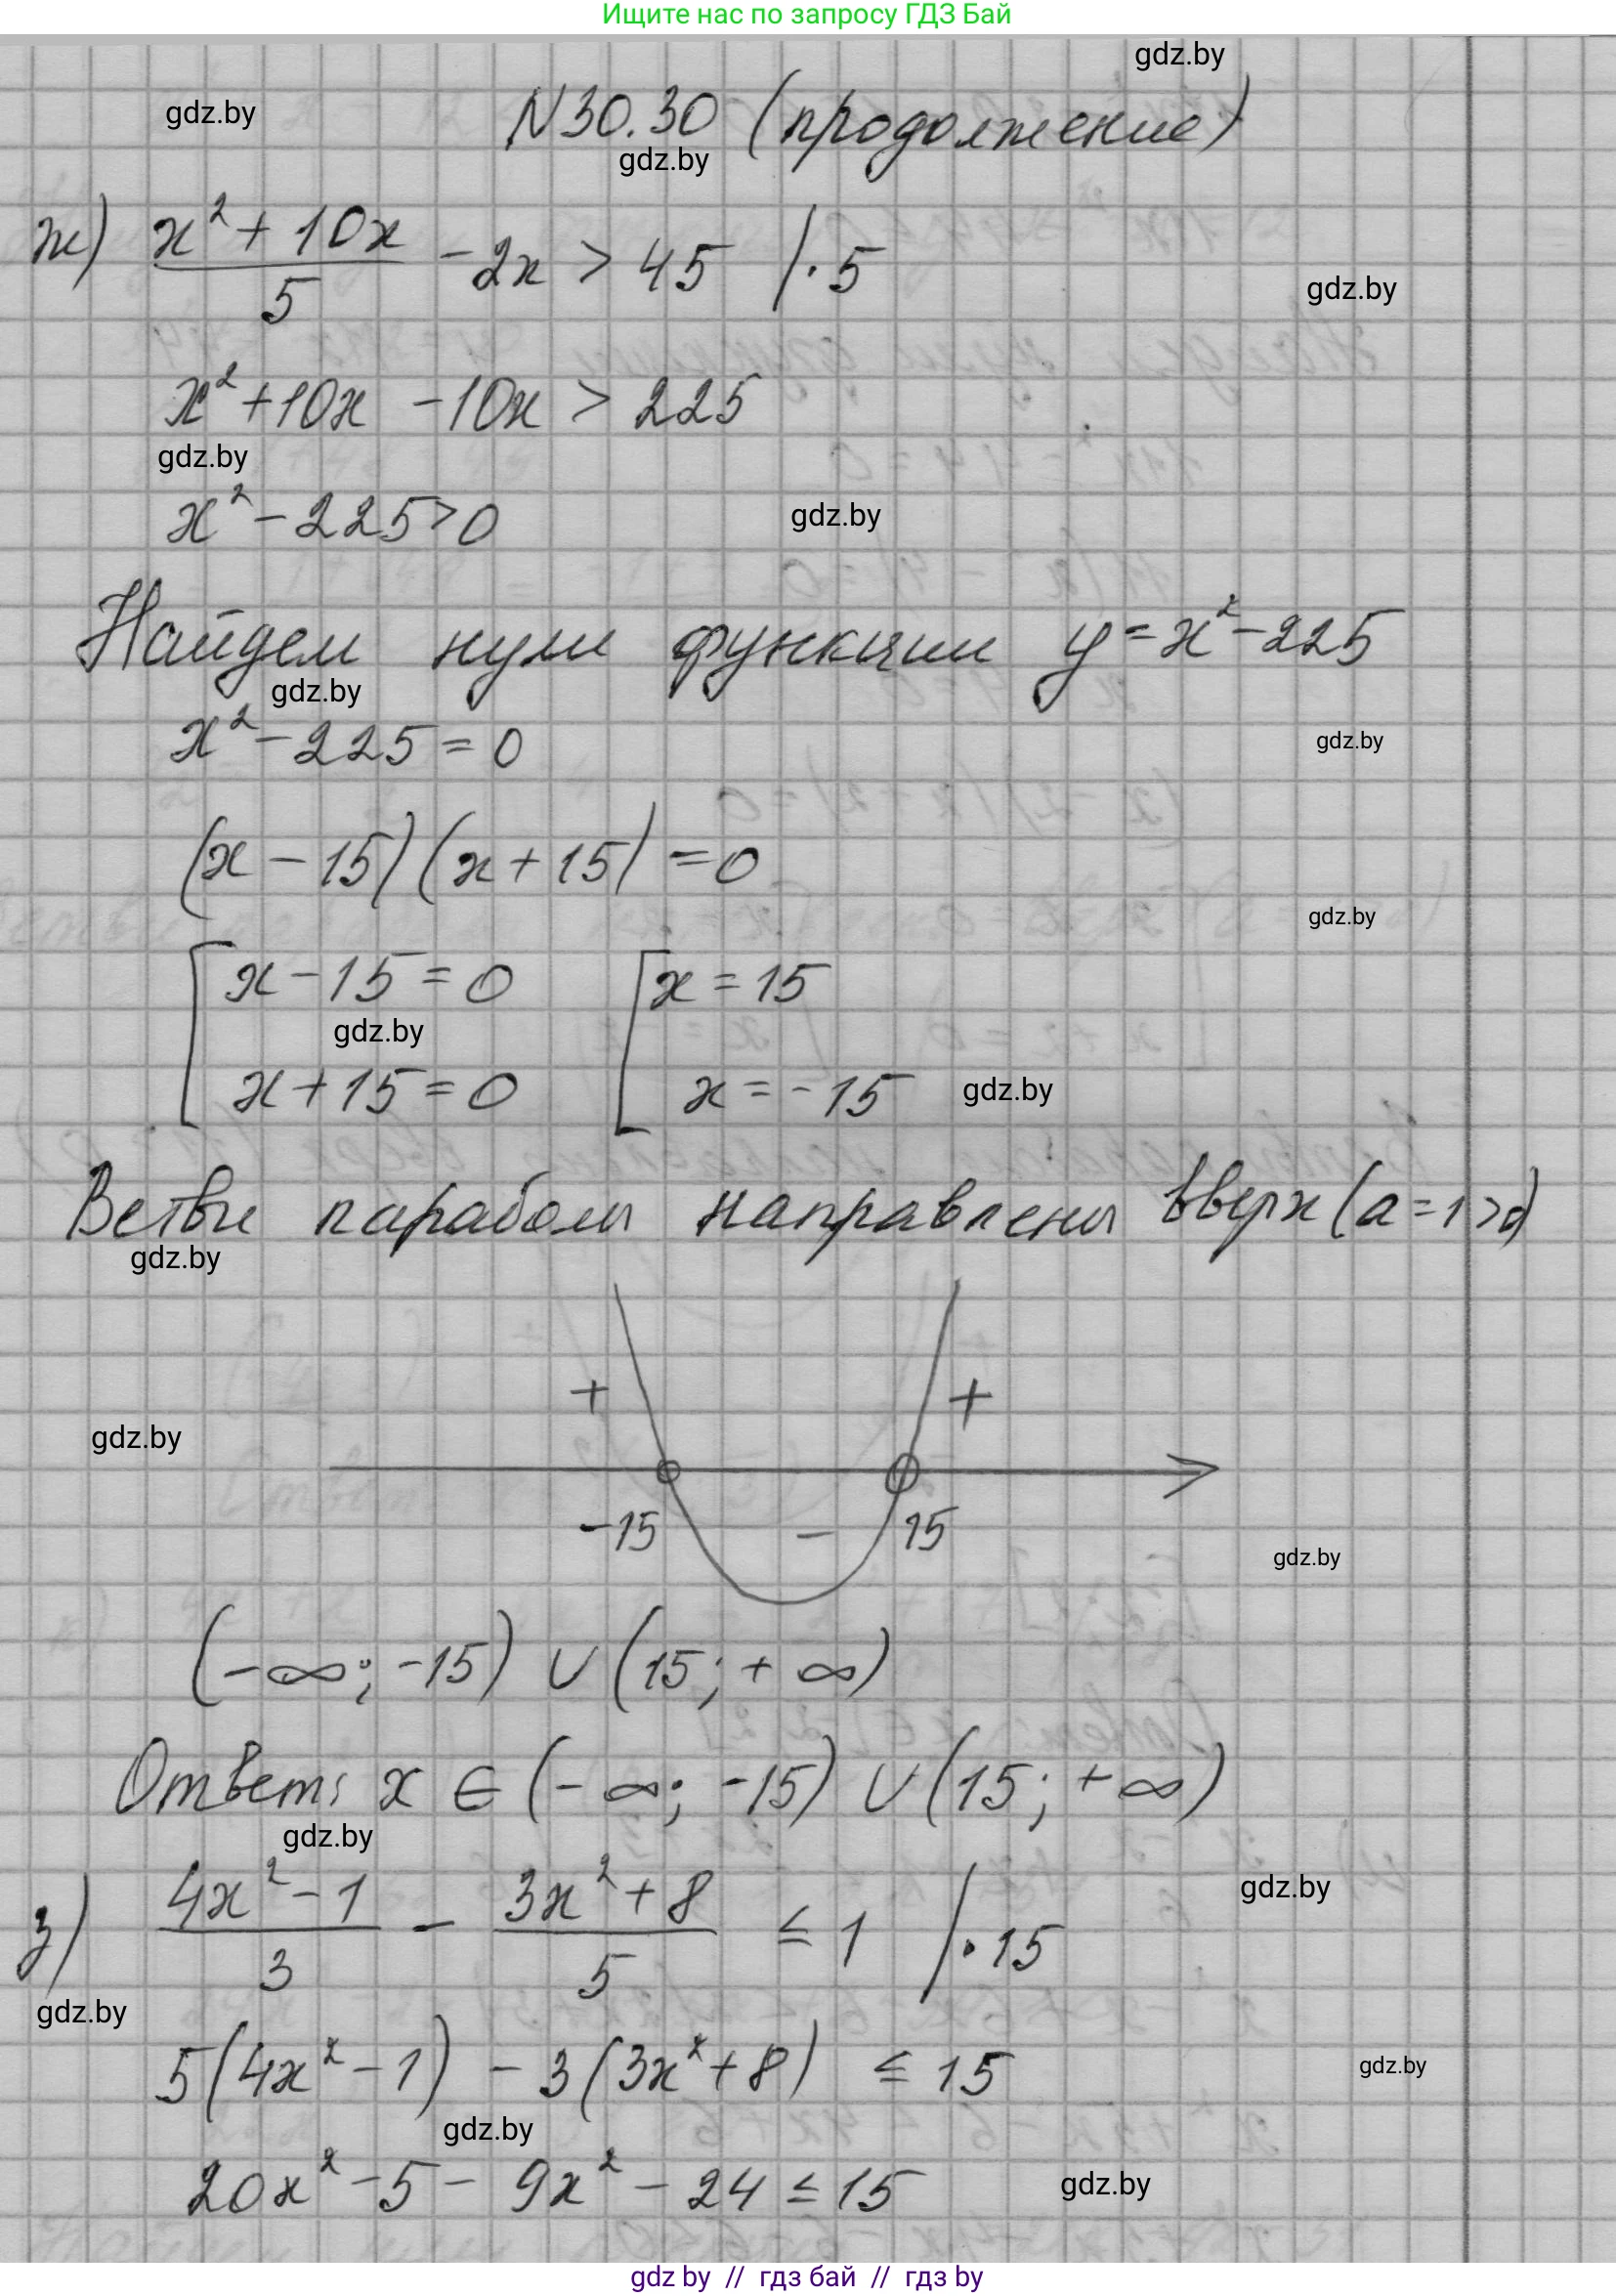 Ищите нас по запросу ГДЗ Бай
gdz.by
gdz.by
N30.30 (продолжение)
gdz.by
ж) (x² + 10x)/5 - 2x > 45 / · 5
gdz.by
x² + 10x - 10x > 225
gdz.by
x² - 225 > 0
gdz.by
Найдем нули функции y = x² - 225
gdz.by
x² - 225 = 0
gdz.by
(x - 15)(x + 15) = 0
gdz.by
[ x - 15 = 0 [ x = 15
gdz.by
x + 15 = 0 x = -15
gdz.by
Ветви параболы направлены вверх (a = 1 > 0)
gdz.by
+ +
gdz.by
-15 - 15
gdz.by
(-∞; -15) ∪ (15; +∞)
Ответ: x ∈ (-∞; -15) ∪ (15; +∞)
gdz.by
gdz.by
з) (4x² - 1)/3 - (3x² + 8)/5 ≤ 1 / · 15
gdz.by
5(4x² - 1) - 3(3x² + 8) ≤ 15
gdz.by
gdz.by
20x² - 5 - 9x² - 24 ≤ 15
gdz.by
gdz by // гдз бай // гдз by